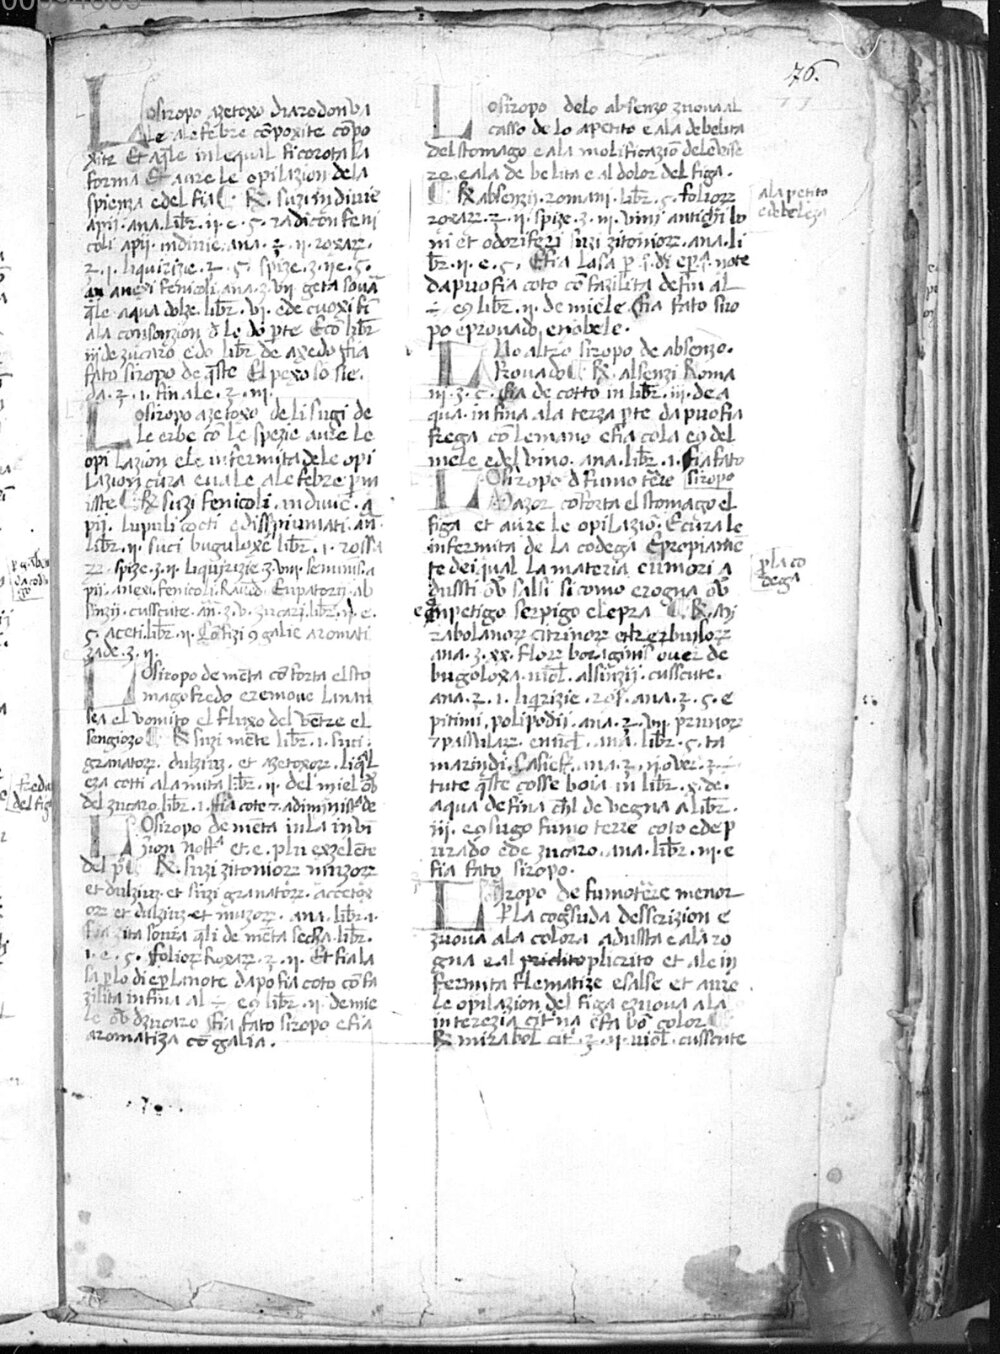 76.
Lo siropo azetoxo diarodon va
le ale febre cōpoxite cōpo
xite Et aq̄le in le qual ficorota la
forma Et aure le opilazion dela
spienza e del fia ℞. suzi indivie
apii. ana. libr̄. ii. e. s. radicōn feni
coli apii. indivie. ana. ʒ. ii. roxarr.
ʒ. i. liquirizie. ʒ. s. spize. ʒ. ii e. s.
an anexi fenicoli. ana. ʒ. vii. geta sovra
q̄le aqua dolze. libr̄. vi. e de cuoxi fin
ala consonzion de le do pte. E cō libr̄
iii de zucaro e do libr̄. de axedo sia
fato siropo de q̄ste El pexo so sie.
da. ʒ. i. fin ale. ʒ. iii.
Lo siropo azetoxo de li sugi de
le erbe cō le spezie aure le
opilazion e le infermita dele opi
lazion cura e vale ale febre pm
iste ℞ suzi fenicoli. indivie. a
pii. lupuli cocti e dispiumati. an.
libr̄. ii. suci buguloxe libr̄. i. rossa
rr. spize. ʒ. ii. liquirizie ʒ. viii. seminis. a
pii. anexi. fenicoli. Raūd. Eupatorii. ab
sinzii. cusscute. an. ʒ. v. zucari. libr̄. ii. e.
s. aceti. libr̄. ii. Confizi 9 galie aromati
zade. ʒ. ii.
Lo siropo de menta cōforta el sto
mago fredo e remove la nau
sea el vomito el fluxo del vētre el
sengiozo ℞ suzi mēte libr̄. i. suci.
granatorr. dulzius. et azetoxorr. liq̄l
eza cotti ala mita libr̄. ii. del miel ov̄
del zucaro. libr̄. i. fia cote 7. adiministᵃ de
Lo siropo de mēta in la invē
zion nostᵃ et. e. plu exzelēte
del p̄ ℞. suzi zitoniorr muzorr
et dulzius. et suzi granatorr. accetox
orr et dulzius et muzorr. ana. libr̄. i.
fia zita sovra q̄li de mēta secha. libr̄.
i. e. s. foliorr roxarr. ʒ. ii. Et fia la
sa p̄ lo di e p̄ la note da po fia coto cō fa
zilita in fina al ÷ e 9 libr̄. ii. de mie
le ov̄ d zucaro sia fato siropo e fia
aromatiza cō galia.
Lo siropo delo absenzo zuova al
casso de lo apetito e ala debelita
del stomago e ala molificaziō dele vise
re. e ala debelita e al dolor del figa.
℞ absenzii. romani. libr̄. s. foliorr
roxarr. ʒ. ii. spize. ʒ. iii. vini antichi bo
ni et odoriferi suzi zitoniorr. ana. li
br̄. ii. e. s. E fia lasa p̄. i. di e p̄. i. note
dapuo fia coto cō fazilita de fin al
÷ e 9 libr̄. ii. de miele sia fato siro
po e provado e nobele.
ala petito
e debeleza
Uno altro siropo de absenzo.
Provado ℞. absenzi Roma
ni. ʒ. s. sia de cotto in libr̄. iii. de a
qua. in fina ala terza pte da puo fia
frega cō le mano e fia cola e 9 del
mele e del vino. ana. libr̄. i. sia fato
siropo
Lo siropo d fumo tēre
Mazor cōforta el stomago el
figa et aure le opilaziō. E cura le
infermita de la codega E propiamē
te dei qual la materia e umori a
dussti ov̄ salsi si como e rogna ov̄
empetigo serpigo e lepra ℞. mi
rabolanorr citrinorr et kerbulorr
ana. ʒ. xx. florr boraginis over de
buguloxa. viol̄. alsinzii. cusscute.
ana. ʒ. i. liqrizie. ros̄. ana. ʒ. s. e
pitimi. polipodii. ana. ʒ. vii. prunorr
7 passularr. enucl̄. ana. libr̄. s. ta
marindi. Casief. ana. ʒ. ii. over. ʒ ÷
tute q̄ste cosse boia in libr̄. x. de.
aqua de fina ch̄l de vegna a libr̄.
iii. e 9 sugo fumo terre coto e dep
urado e de zucaro. ana. libr̄. iii. e
fia fato siropo.
p̄ la co
dega
Lo siropo de fumotēre menor
p̄ la cognossuda desscrizion e
zuova ala colora adussta e ala ro
gna e al plicrito et ale in
fermita flematize e salse et aure
le opilazion del figa e zuova ala
interezia citᵃina e fa bō color
℞ mirabol̄. citᵃ. ʒ. ii. viol̄. cusscute